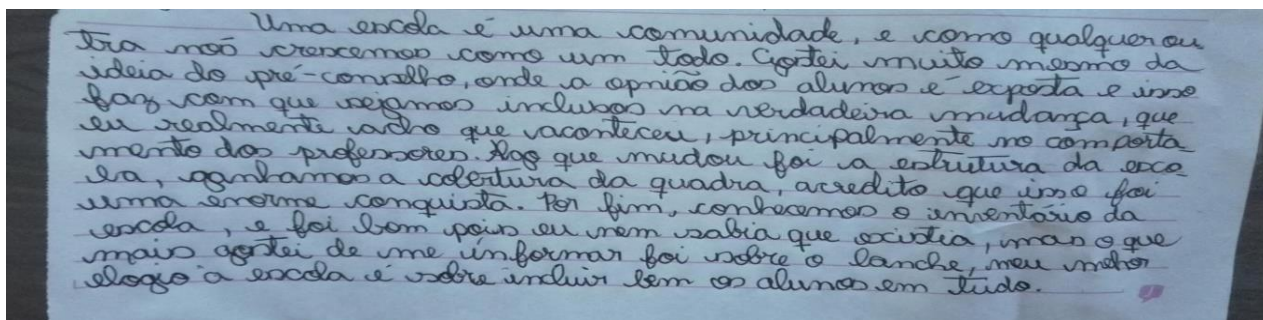 Uma escola é uma comunidade, e como qualquer ou
tra nós crescemos como um todo. Gostei muito mesmo da
ideia do pré-conselho, onde a opnião dos alunos é exposta e isso
faz com que sejamos inclusos na verdadeira mudança, que
eu realmente acho que aconteceu, principalmente no comporta
mento dos professores. Algo que mudou foi a estrutura da esco
la, ganhamos a cobertura da quadra, acredito que isso foi
uma enorme conquista. Por fim, conhecemos o inventário da
escola, e foi bom pois eu nem sabia que existia, mas o que
mais gostei de me informar foi sobre o lanche, meu melhor
elogio à escola é sobre incluir bem os alunos em tudo.